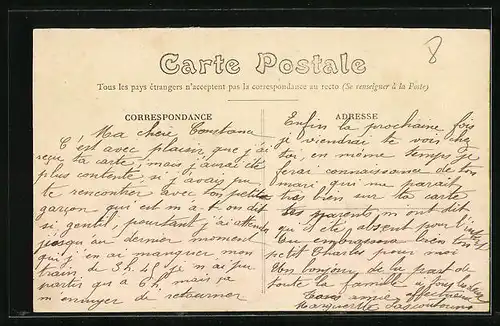 8
Carte Postale
Tous les pays étrangers n'acceptent pas la correspondance au recto (Se renseigner à la Poste)
CORRESPONDANCE
Ma chère Constance
C'est avec plaisir que j'ai
reçu ta carte, mais j'aurai été
plus contente si j'avais pu
te rencontrer avec ton petit
garçon qui est m'a-t-on dit
si gentil, pourtant j'ai attendu
jusqu'au dernier moment
que j'en ai manquer mon
train, de 3h 48 je n'ai pu
partir qu'a 6h, mais ça
m'ennuyer de retourner
ADRESSE
Enfin la prochaine fois
je viendrai te voir chez
toi, en même temps je
ferai connaissance de ton
mari, qui me parait
très bien sur ta carte
Tes parents m'ont dit
qu'il été absent pour l'
Tu embrassera bien ton
petit Charles pour moi
Un bonjour de la part de
toute la famille a tous les deux
Ton amie affectueuse
Marguerite